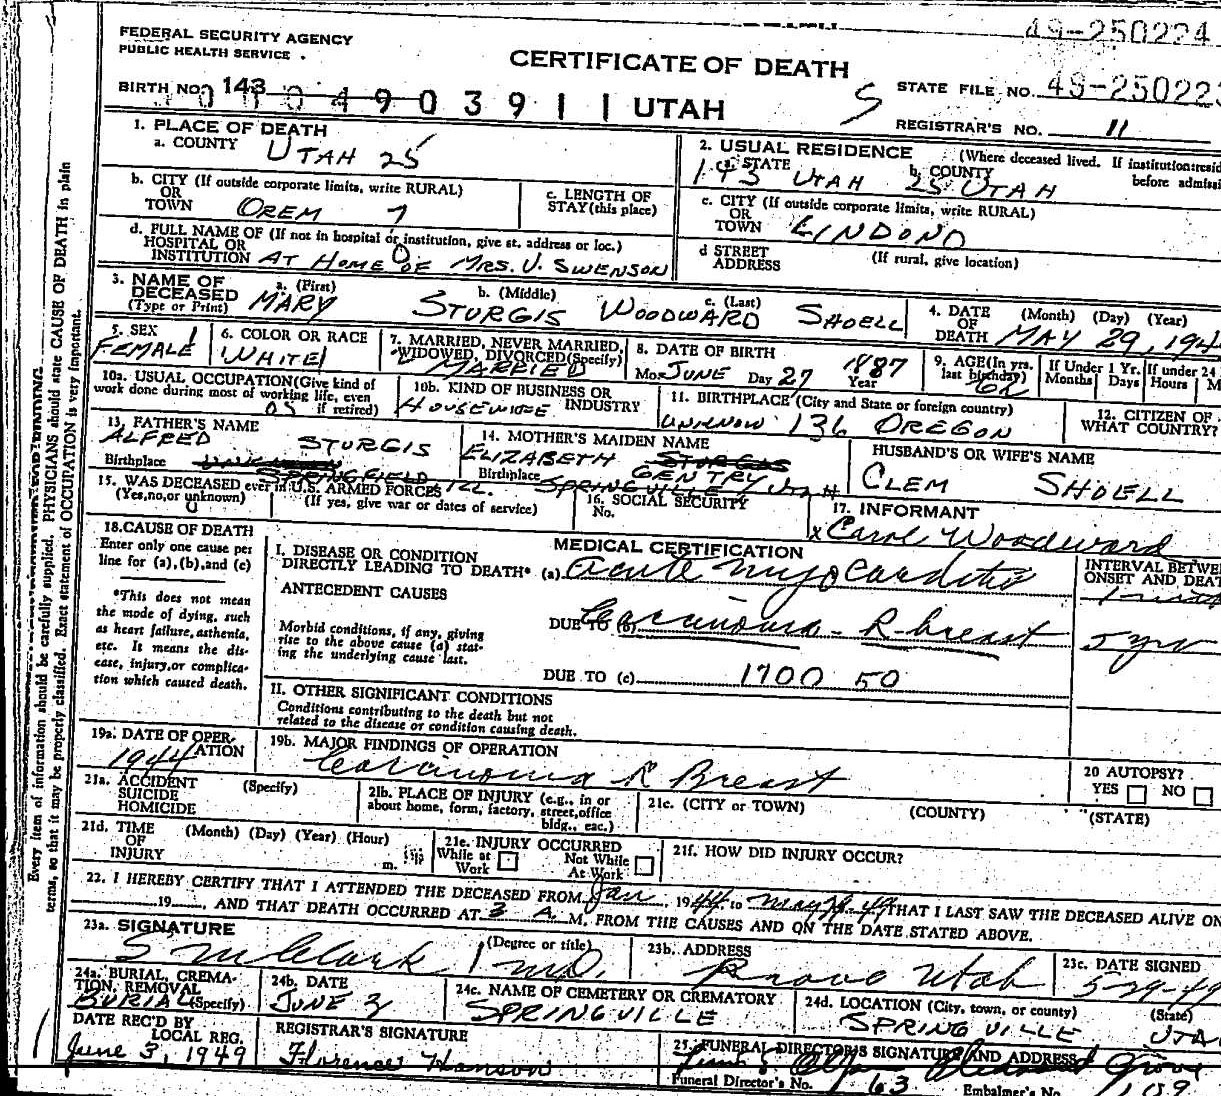 49-250224
FEDERAL SECURITY AGENCY
PUBLIC HEALTH SERVICE
CERTIFICATE OF DEATH
BIRTH NO. 143
0 4 9 0 3 9 1 1 UTAH
S
STATE FILE NO. 49-25022
REGISTRAR'S NO. 11
1. PLACE OF DEATH
a. COUNTY UTAH 25
2. USUAL RESIDENCE (Where deceased lived. If institution: resid
before admissi
a. STATE 143 UTAH b. COUNTY 25 UTAH
b. CITY (If outside corporate limits, write RURAL)
OR
TOWN OREM 7
c. LENGTH OF
STAY (this place)
c. CITY (If outside corporate limits, write RURAL)
OR
TOWN LINDOND
d. FULL NAME OF (If not in hospital or institution, give st. address or loc.)
HOSPITAL OR
INSTITUTION AT HOME OF MRS. V. SWENSON
d STREET
ADDRESS
(If rural, give location)
3. NAME OF
DECEASED
(Type or Print)
a. (First) b. (Middle) c. (Last)
MARY STURGIS WOODWARD SHOELL
4. DATE
OF
DEATH
(Month) (Day) (Year)
MAY 29, 194
5. SEX 1
FEMALE
6. COLOR OR RACE
WHITE 1
7. MARRIED, NEVER MARRIED,
WIDOWED, DIVORCED (Specify)
MARRIED
8. DATE OF BIRTH
Mo. JUNE Day 27 1887 Year
9. AGE (In yrs.
last birthday)
If Under 1 Yr.
Months Days
If under 24
Hours M
10a. USUAL OCCUPATION (Give kind of
work done during most of working life, even
if retired)
10b. KIND OF BUSINESS OR
INDUSTRY
HOUSEWIFE
11. BIRTHPLACE (City and State or foreign country)
UNKNOW 136 OREGON
12. CITIZEN OF
WHAT COUNTRY?
13. FATHER'S NAME
ALFRED STURGIS
Birthplace SPRINGFIELD ILL.
14. MOTHER'S MAIDEN NAME
ELIZABETH STURGIS GENTRY
Birthplace SPRINGVILLE UTAH
HUSBAND'S OR WIFE'S NAME
CLEM SHOELL
15. WAS DECEASED ever in U.S. ARMED FORCES
(Yes, no, or unknown)
(If yes, give war or dates of service)
16. SOCIAL SECURITY
No.
17. INFORMANT
x Carol Woodward
18. CAUSE OF DEATH
Enter only one cause per
line for (a), (b), and (c)
*This does not mean
the mode of dying, such
as heart failure, asthenia,
etc. It means the dis-
ease, injury, or complica-
tion which caused death.
MEDICAL CERTIFICATION
I. DISEASE OR CONDITION
DIRECTLY LEADING TO DEATH* (a) Acute Myocarditis
INTERVAL BETWE
ONSET AND DEAT
ANTECEDENT CAUSES
Morbid conditions, if any, giving
rise to the above cause (a) stat-
ing the underlying cause last.
DUE TO (b) Carcinoma - R. breast 5 yrs
DUE TO (c) 1700 50
II. OTHER SIGNIFICANT CONDITIONS
Conditions contributing to the death but not
related to the disease or condition causing death.
19a. DATE OF OPER-
ATION
1944
19b. MAJOR FINDINGS OF OPERATION
Carcinoma R Breast
20 AUTOPSY?
YES NO
21a. ACCIDENT
SUICIDE
HOMICIDE
(Specify)
21b. PLACE OF INJURY (e.g., in or
about home, form, factory, street, office
bldg., eac.)
21c. (CITY or TOWN) (COUNTY) (STATE)
21d. TIME
OF
INJURY
(Month) (Day) (Year) (Hour)
m.
21e. INJURY OCCURRED
While at
Work
Not While
At Work
21f. HOW DID INJURY OCCUR?
22. I HEREBY CERTIFY THAT I ATTENDED THE DECEASED FROM Jan, 1944 to May 29-49 THAT I LAST SAW THE DECEASED ALIVE ON
19 , AND THAT DEATH OCCURRED AT 3 A. M. FROM THE CAUSES AND ON THE DATE STATED ABOVE.
23a. SIGNATURE (Degree or title)
S M Clark M.D.
23b. ADDRESS
Provo Utah
23c. DATE SIGNED
5-29-49
24a. BURIAL, CREMA-
TION, REMOVAL
(Specify)
BURIAL
24b. DATE
JUNE 2
24c. NAME OF CEMETERY OR CREMATORY
SPRINGVILLE
24d. LOCATION (City, town, or county) (State)
SPRINGVILLE UTA
DATE REC'D BY
LOCAL REG.
June 3, 1949
REGISTRAR'S SIGNATURE
Florence Hanson
25. FUNERAL DIRECTOR'S SIGNATURE AND ADDRESS
Grove
Funeral Director's No. 63 Embalmer's No. 109
Every item of information should be carefully supplied. PHYSICIANS should state CAUSE OF DEATH in plain
terms, so that it may be properly classified. Exact statement of OCCUPATION is very important.